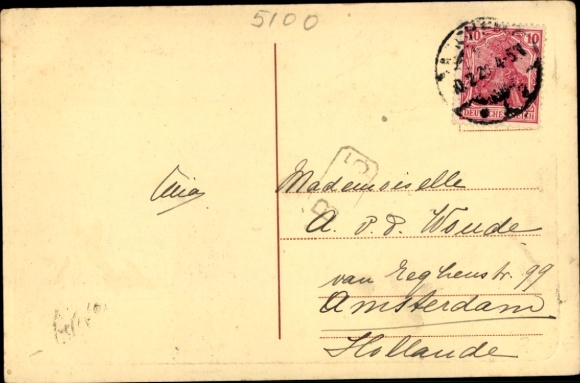 5100
10 10
DEUTSCHES REICH
Mademoiselle
A. v. d. Woude
van Eeghenstr. 99
Amsterdam
Hollande